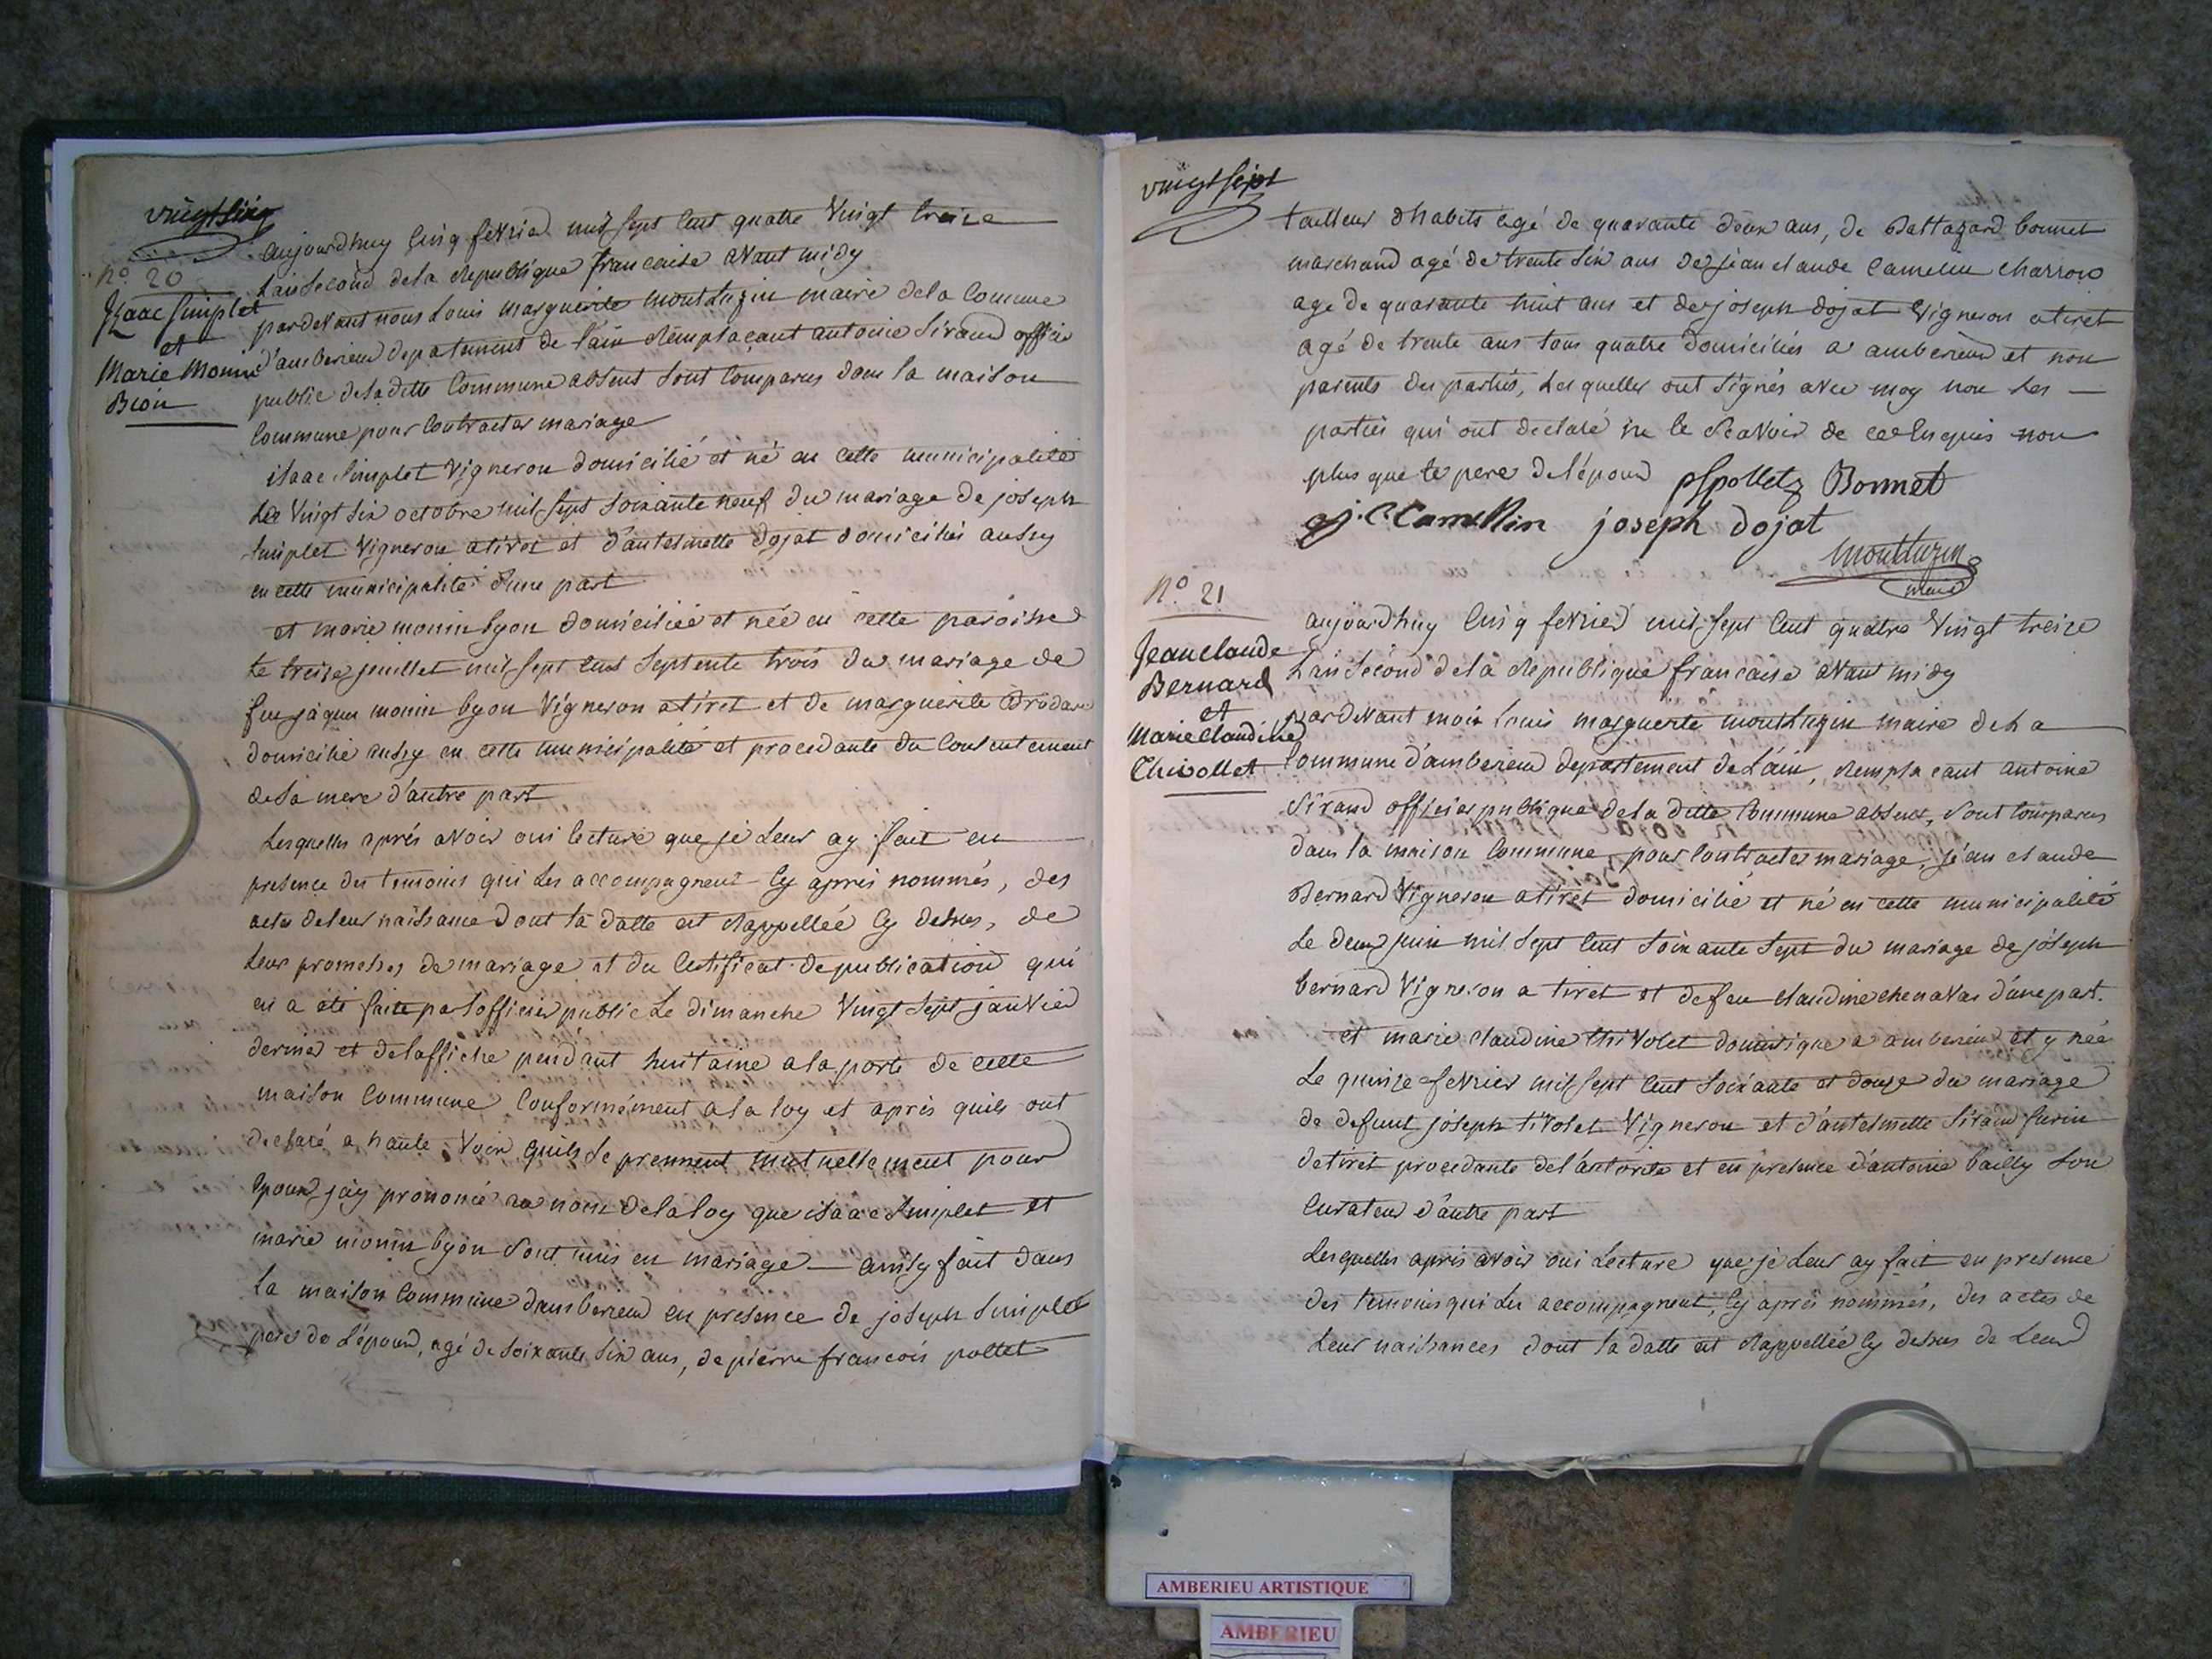 vingt six
N.o 20
Izaac Simplet
et
Marie Monin
Bion
aujourdhuy Cinq fevrier mil sept Cent quatre Vingt treize
Lan Second dela Republique francaise avant midy
pardevant nous Louis marguerite montluzin maire dela Commune
d'amberieu depatement de l'ain Remplacant antoine Sirand officier
public deladitte Commune absent sont Comparus dans la maison
Commune pour Contracter mariage
isaac Simplet Vigneron domicilié et né en cette municipalité
Le Vingt six octobre mil sept soixante neuf du mariage de joseph
Simplet Vigneron a tiret et d'antelmette dojat domiciliés aussy
en cette municipalité d'une part
et marie monin byon domiciliée et née en cette paroisse
le treize juillet mil sept cent septente trois du mariage de
feu jaques monin byon Vigneron a tiret et de marguerite
domicilié aussy en cette municipalité et procedante du Consentement
de sa mere d'autre part
Lesquelles après avoir oui lecture que je Leur ay fait en
presence des temoins qui les accompagnent Cy après nommés, des
actes de leur naissance dont la datte est Rappellée Cy dessus, de
Leur promesses de mariage et du Certificat de publication qui
en a été faite par l'officier public Le dimanche Vingt sept janvier
dernier et de laffiche pendant huitaine a la porte de cette
maison Commune Conformément a la loy et après quils ont
declaré a haute Voix quils se prennent mutuellement pour
Epoux jay prononcé au nom de la loy que isaac Simplet et
marie monin byon sont unis en mariage - ainsy fait dans
La maison Commune damberieu en presence de joseph Simplet
pere de L'époux, agé de soixante six ans, de pierre francois pollet
vingt sept
tailleur d'habits agé de quarante deux ans, de Baltazard bonnet
marchand agé de trente six ans de jean claude Camelin Charron
agé de quarante huit ans et de joseph dojat Vigneron a tiret
agé de trente ans tous quatre domiciliés a amberieu et non
parents des parties, Lesquelles ont signés avec moy non Les
parties qui ont declaré ne le Scavoir de ce Enquis non
plus que le pere de l'époux pfpollet Bonnet
j. C Camellin joseph dojat
montluzin
maire
N.o 21
Jean claude
Bernard
et
Marie Claudine
Thivollet
aujourdhuy Cinq fevrier mil sept Cent quatre Vingt treize
Lan Second de la Republique francaise avant midy
pardevant moi Louis marguerite montluzin maire de La
Commune d'amberieu departement de L'ain, Remplacant antoine
Sirand officier publique de la ditte Commune absent, sont Comparus
dans la maison Commune, pour Contracter mariage, jean claude
Bernard Vigneron a tiret domicilié et né en cette municipalité
Le deux juin mil sept Cent soixante sept du mariage de joseph
bernard Vigneron a tiret et de feu claudine chenavas d'une part.
et marie claudine thivolet domestique a amberieu et y née
Le quinze fevrier mil sept Cent soixante et douze du mariage
de defunt joseph tivolet Vigneron et d'antelmette Sirand
de tiret procedante de l'autorité et en presence d'antoine bailly son
Curateur d'autre part
Lesquelles après avoir oui Lecture que je Leur ay fait en presence
des temoins qui Les accompagnent, Cy après nommés, des actes de
Leur naissances dont la datte est Rappellée Cy dessus de Leur
AMBERIEU ARTISTIQUE
AMBERIEU